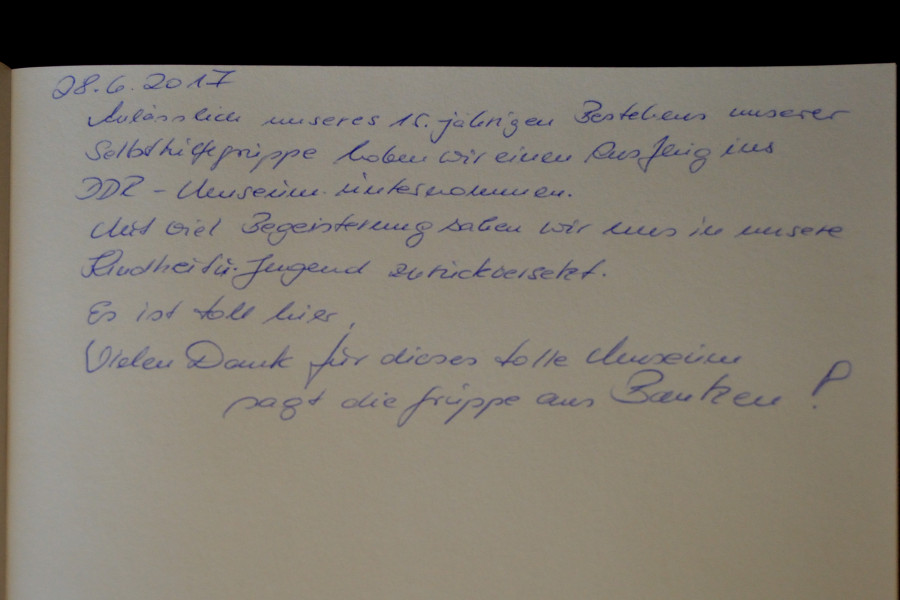 28.6.2017
Anlässlich unseres 15. jährigen Bestehens unserer
Selbsthilfegruppe haben wir einen Ausflug ins
DDR - Museum unternommen.
Mit viel Begeisterung haben wir uns in unsere
Kindheit u. Jugend zurückversetzt.
Es ist toll hier,
Vielen Dank für dieses tolle Museum
sagt die Gruppe aus Bautzen!